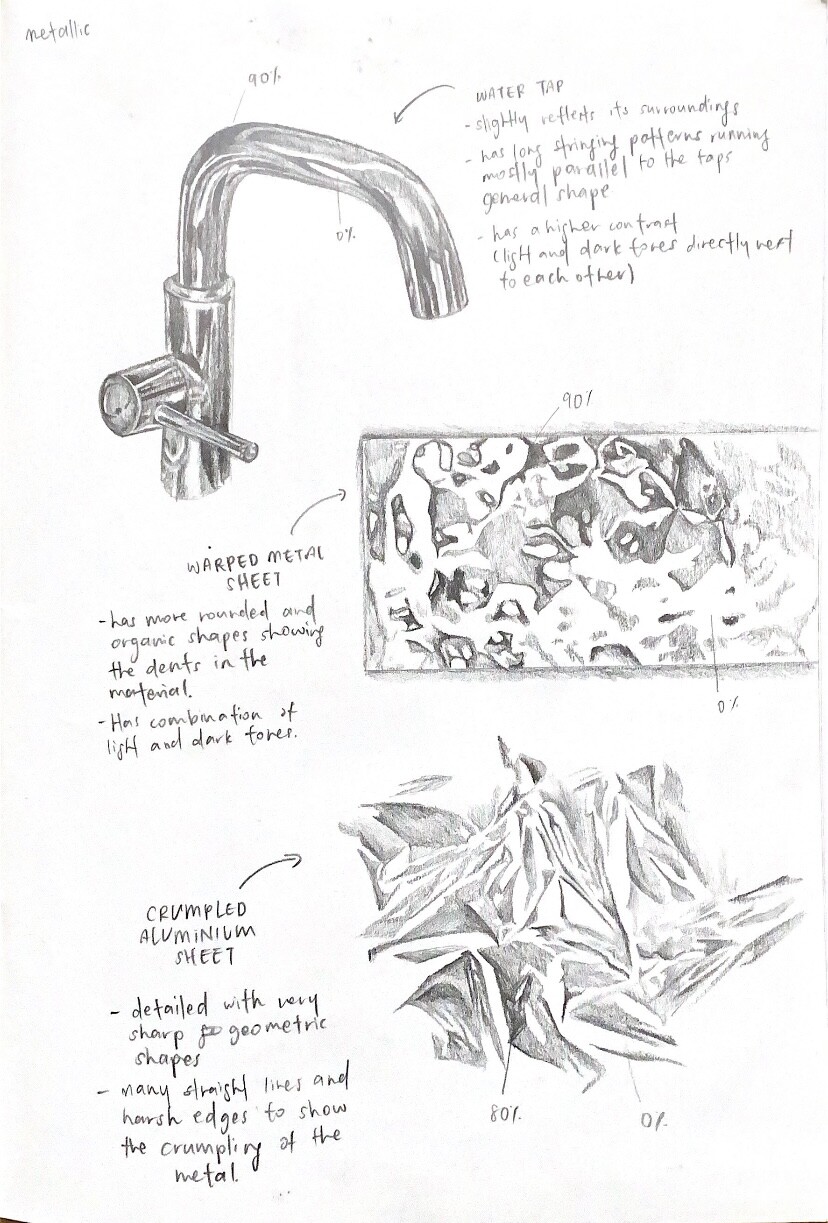 metallic
90%
WATER TAP
- slightly reflects its surroundings
- has long stringing patterns running
mostly parallel to the taps
general shape
0%
- has a higher contrast
(light and dark tones directly next
to each other)
90%
WARPED METAL
SHEET
- has more rounded and
organic shapes showing
the dents in the
material.
- Has combination of
light and dark tones.
0%
CRUMPLED
ALUMINIUM
SHEET
- detailed with very
sharp geometric
shapes
- many straight lines and
harsh edges to show
the crumpling of the
metal.
80%
0%